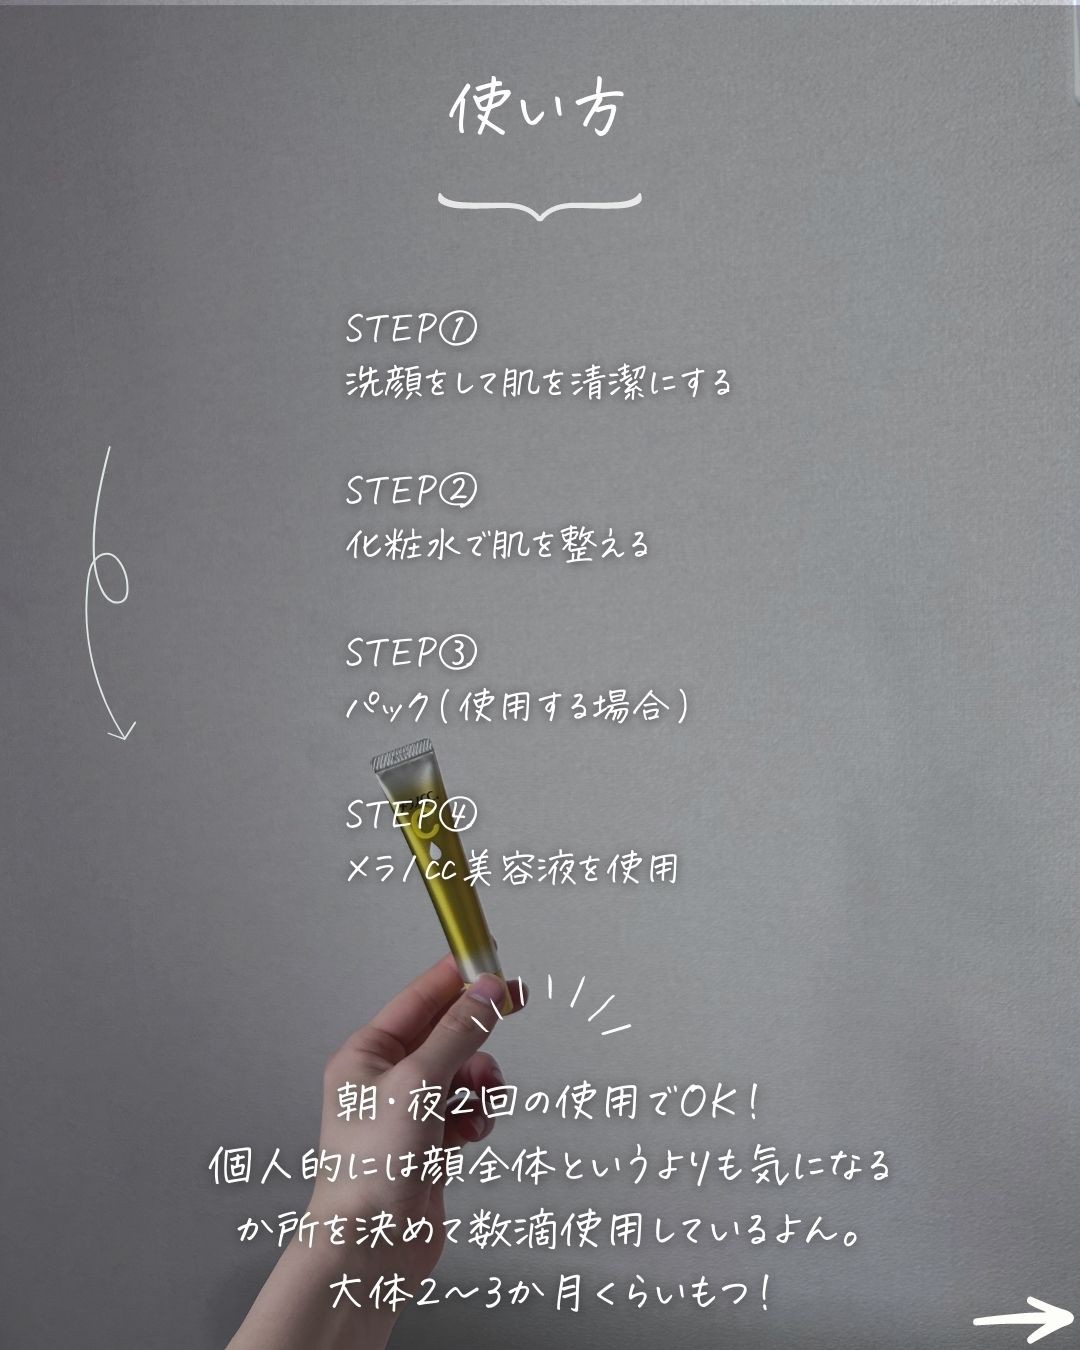 使い方
STEP①
洗顔をして肌を清潔にする
STEP②
化粧水で肌を整える
STEP③
パック(使用する場合)
STEP④
メラノcc美容液を使用
朝・夜2回の使用でOK!
個人的には顔全体というよりも気になる
か所を決めて数滴使用しているよん。
大体2〜3か月くらいもつ!